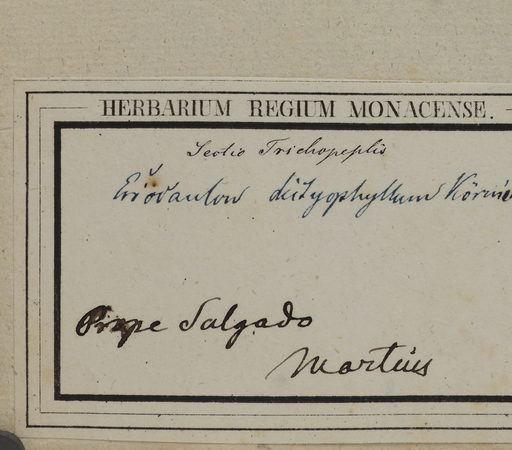 HERBARIUM REGIUM MONACENSE.
Sectio Trichopeplis
dictyophyllum Körnic
Prope Salgado
Martius